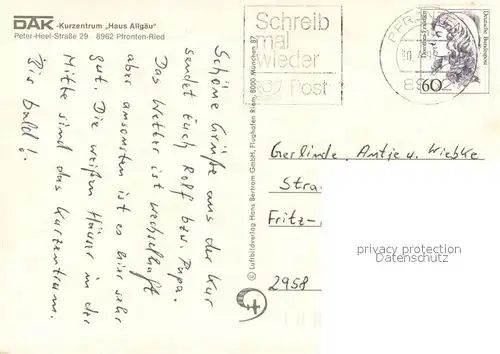 DAK-Kurzentrum „Haus Allgäu“
Peter-Heel-Straße 29 8962 Pfronten-Ried
Schöne Grüße aus der Kur
sendet Euch Rolf bzw. Papa.
Das Wetter ist wechselhaft
aber ansonsten ist es hier sehr
gut. Die weißen Häuser in der
Mitte sind das Kurzentrum.
Bis bald!
© Luftbildverlag Hans Bertram GmbH, Flughafen Riem, 8000 München 87
Schreib
mal
wieder
Post
PFR
30.
896
60
Deutsche Bundespost
Gerlinde, Antje u. Wiebke
Stra
Fritz-
2958
privacy protection
Datenschutz